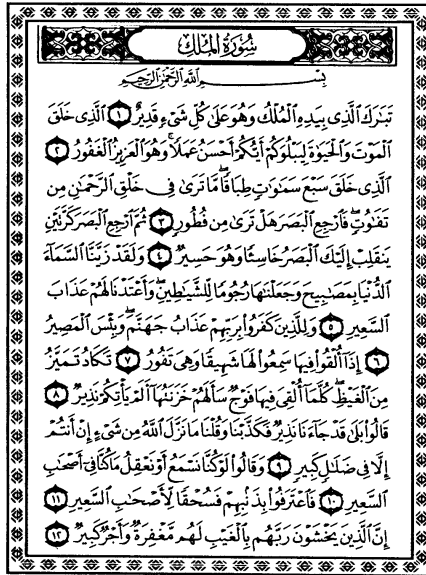 سُورَةُ المُلْكِ
بِسْمِ اللَّهِ الرَّحْمَٰنِ الرَّحِيمِ
تَبَٰرَكَ ٱلَّذِى بِيَدِهِ ٱلْمُلْكُ وَهُوَ عَلَىٰ كُلِّ شَىْءٍ قَدِيرٌ ١ ٱلَّذِى خَلَقَ
ٱلْمَوْتَ وَٱلْحَيَوٰةَ لِيَبْلُوَكُمْ أَيُّكُمْ أَحْسَنُ عَمَلًا ۚ وَهُوَ ٱلْعَزِيزُ ٱلْغَفُورُ ٢
ٱلَّذِى خَلَقَ سَبْعَ سَمَٰوَٰتٍ طِبَاقًا ۖ مَّا تَرَىٰ فِى خَلْقِ ٱلرَّحْمَٰنِ مِن
تَفَٰوُتٍ ۖ فَٱرْجِعِ ٱلْبَصَرَ هَلْ تَرَىٰ مِن فُطُورٍ ٣ ثُمَّ ٱرْجِعِ ٱلْبَصَرَ كَرَّتَيْنِ
يَنقَلِبْ إِلَيْكَ ٱلْبَصَرُ خَاسِئًا وَهُوَ حَسِيرٌ ٤ وَلَقَدْ زَيَّنَّا ٱلسَّمَآءَ
ٱلدُّنْيَا بِمَصَٰبِيحَ وَجَعَلْنَٰهَا رُجُومًا لِّلشَّيَٰطِينِ ۖ وَأَعْتَدْنَا لَهُمْ عَذَابَ
ٱلسَّعِيرِ ٥ وَلِلَّذِينَ كَفَرُوا۟ بِرَبِّهِمْ عَذَابُ جَهَنَّمَ ۖ وَبِئْسَ ٱلْمَصِيرُ
٦ إِذَآ أُلْقُوا۟ فِيهَا سَمِعُوا۟ لَهَا شَهِيقًا وَهِىَ تَفُورُ ٧ تَكَادُ تَمَيَّزُ
مِنَ ٱلْغَيْظِ ۖ كُلَّمَآ أُلْقِىَ فِيهَا فَوْجٌ سَأَلَهُمْ خَزَنَتُهَآ أَلَمْ يَأْتِكُمْ نَذِيرٌ ٨
قَالُوا۟ بَلَىٰ قَدْ جَآءَنَا نَذِيرٌ فَكَذَّبْنَا وَقُلْنَا مَا نَزَّلَ ٱللَّهُ مِن شَىْءٍ إِنْ أَنتُمْ
إِلَّا فِى ضَلَٰلٍ كَبِيرٍ ٩ وَقَالُوا۟ لَوْ كُنَّا نَسْمَعُ أَوْ نَعْقِلُ مَا كُنَّا فِىٓ أَصْحَٰبِ
ٱلسَّعِيرِ ١٠ فَٱعْتَرَفُوا۟ بِذَنۢبِهِمْ فَسُحْقًا لِّأَصْحَٰبِ ٱلسَّعِيرِ ١١
إِنَّ ٱلَّذِينَ يَخْشَوْنَ رَبَّهُم بِٱلْغَيْبِ لَهُم مَّغْفِرَةٌ وَأَجْرٌ كَبِيرٌ ١٢